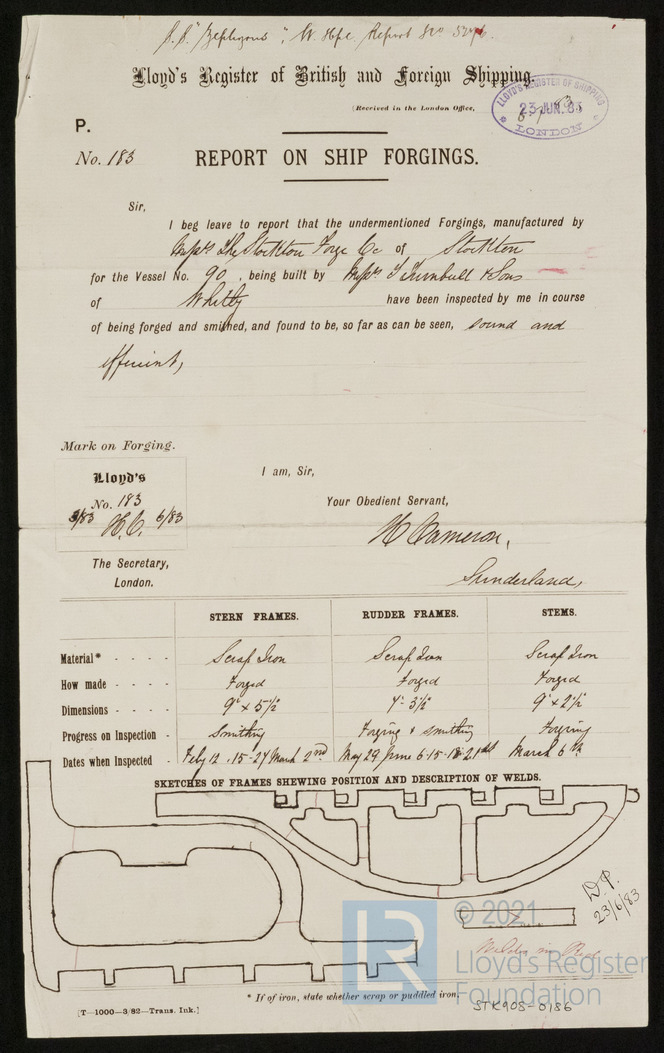 S.S. "Zephyrus", W. Hpl. Report No.
Lloyd's Register of British and Foreign Shipping.
(Received in the London Office,
LLOYD'S REGISTER OF SHIPPING
23 JUN. 83
LONDON
P.
No. 183
REPORT ON SHIP FORGINGS.
Sir,
I beg leave to report that the undermentioned Forgings, manufactured by
Messrs The Stockton Forge Co of Stockton
for the Vessel No. 90, being built by Messrs T Turnbull & Sons
of Whitby have been inspected by me in course
of being forged and smithed, and found to be, so far as can be seen, sound and
efficient,
Mark on Forging.
Lloyd's
No. 183
3/83 H.C. 6/83
I am, Sir,
Your Obedient Servant,
H Cameron,
Sunderland,
The Secretary,
London.
STERN FRAMES. RUDDER FRAMES. STEMS.
Material* - - - - Scrap Iron Scrap Iron Scrap Iron
How made - - - - Forged Forged Forged
Dimensions - - - - 9" x 5½ 7" 3½ 9" x 2½
Progress on Inspection - Smithing Forging & smithing Forging
Dates when Inspected - Feby 12 . 15 - 27 March 2nd May 29 June 6.15.18.21st March 6th
SKETCHES OF FRAMES SHEWING POSITION AND DESCRIPTION OF WELDS.
D.P.
23/6/83
Welds in Red
© 2021
LR
Lloyd's Register
Foundation
* If of iron, state whether scrap or puddled iron.
STK908-0186
[T—1000—3/82—Trans. Ink.]